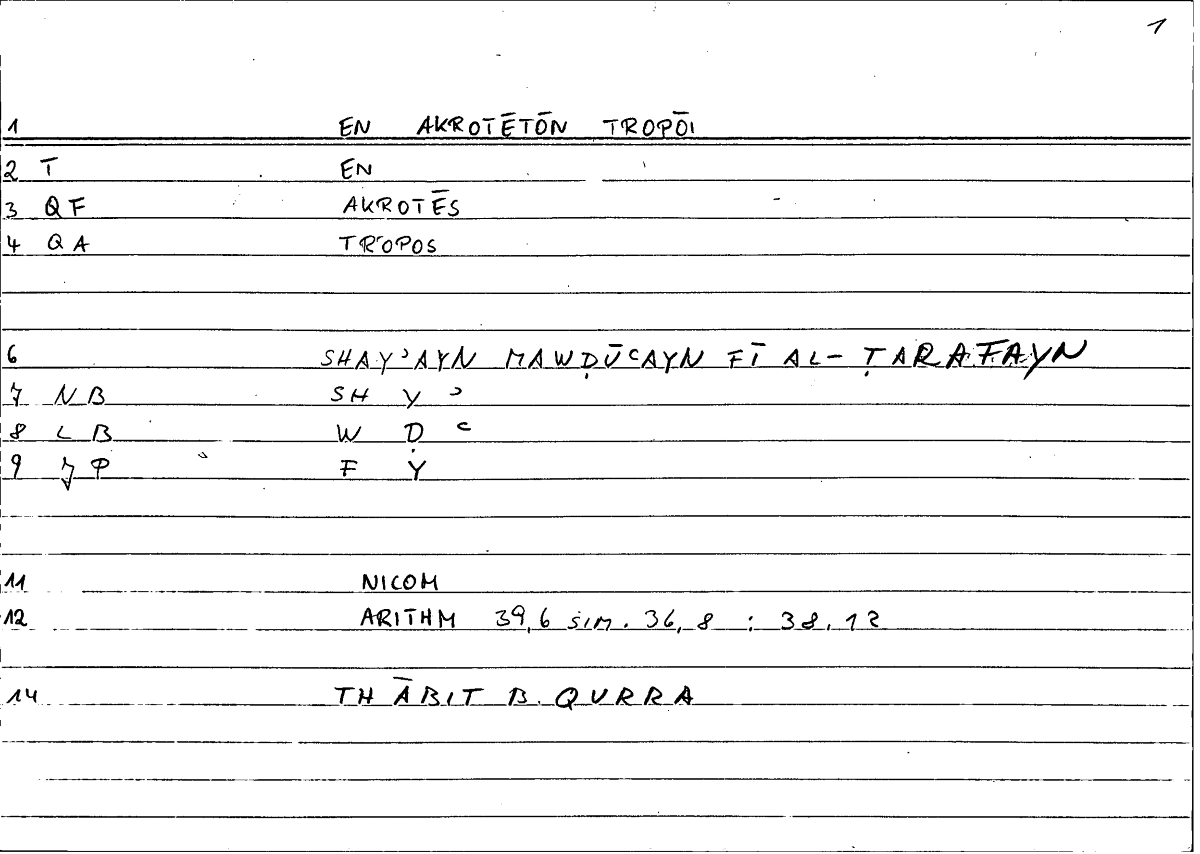 1
1 EN AKROTĒTŌN TROPŌI
2 T EN
3 QF AKROTĒS
4 QA TROPOS
6 SHAYʾAYN MAWḌŪʿAYN FĪ AL-ṬARAFAYN
7 NB SH Y ʾ
8 LB W Ḍ ʿ
9 JP F Y
11 NICOM
12 ARITHM 39,6 sim. 36,8 ; 38,12
14 THĀBIT B. QURRA